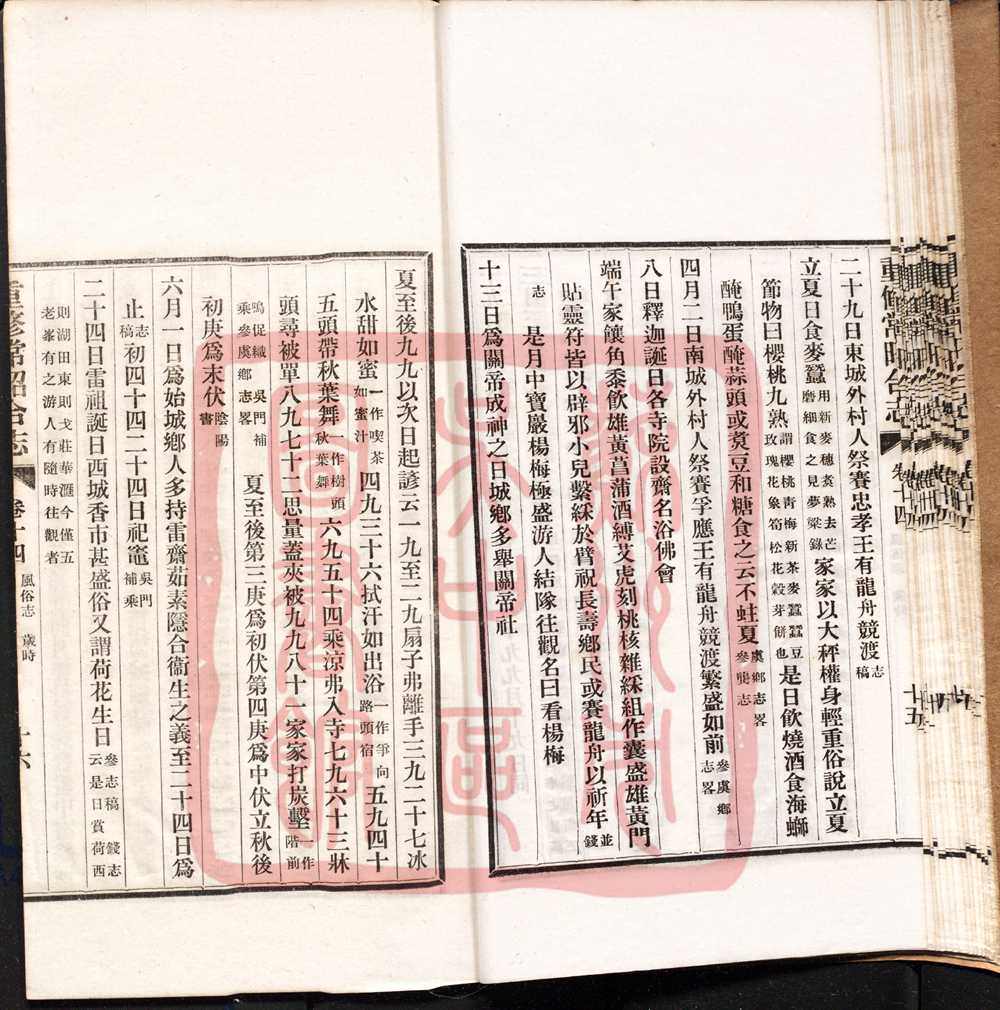 二十九日東城外村人祭賽忠孝王有龍舟競渡志稿
立夏日食麥蠶用新麥穗煑熟去芒磨細食之見夢粱錄家家以大秤權身輕重俗說立夏
節物曰櫻桃九熟謂櫻桃靑梅新茶麥蠶蠶豆玫瑰花象筍松花穀芽餅也是日飲燒酒食海螄
醃鴨蛋醃蒜頭或煑豆和糖食之云不蛀夏虞鄉志畧參龔志
四月二日南城外村人祭賽孚應王有龍舟競渡繁盛如前參虞鄉志畧
八日釋迦誕日各寺院設齋名浴佛會
端午家饟角黍飲雄黃菖蒲酒縛艾虎刻桃核雜綵組作囊盛雄黃門
貼靈符皆以辟邪小兒繫綵於臂祝長壽鄉民或賽龍舟以祈年並錢
志 是月中寶巖楊梅極盛游人結隊往觀名曰看楊梅
十三日爲關帝成神之日城鄉多舉關帝社
重修常昭合志
卷十四
十五
夏至後九九以次日起諺云一九至二九扇子弗離手三九二十七冰
水甜如蜜一作喫茶如蜜汁四九三十六拭汗如出浴一作爭向路頭宿五九四十
五頭帶秋葉舞一作樹頭秋葉舞六九五十四乘涼弗入寺七九六十三牀
頭尋被單八九七十二思量蓋夾被九九八十一家家打炭墼一作階前
鳴促織 吳門補乘參虞鄉志畧 夏至後第三庚爲初伏第四庚爲中伏立秋後
初庚爲末伏陰陽書
六月一日爲始城鄉人多持雷齋茹素隱合衞生之義至二十四日爲
止志稿初四十四二十四日祀竈吳門補乘
二十四日雷祖誕日西城香市甚盛俗又謂荷花生日參志稿 錢志云是日賞荷西
則湖田東則戈莊華滙今僅五老峯有之游人有隨時往觀者
重修常昭合志
卷十四
風俗志 歲時
十六